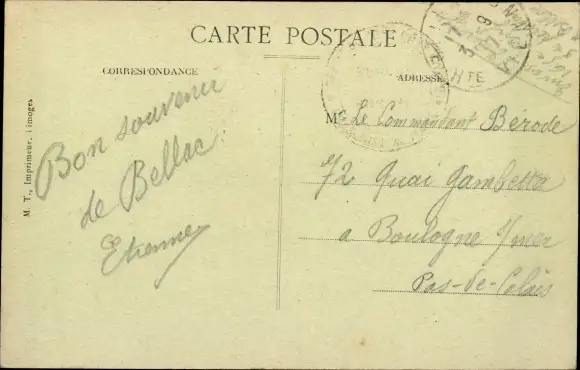 CARTE POSTALE
CORRESPONDANCE
ADRESSE
Bon souvenir
de Bellac
Etienne
M. Le Commandant Bérode
72 Quai Gambetta
a Boulogne s/mer
Pas-de-Calais
M. T., Imprimeur, Limoges